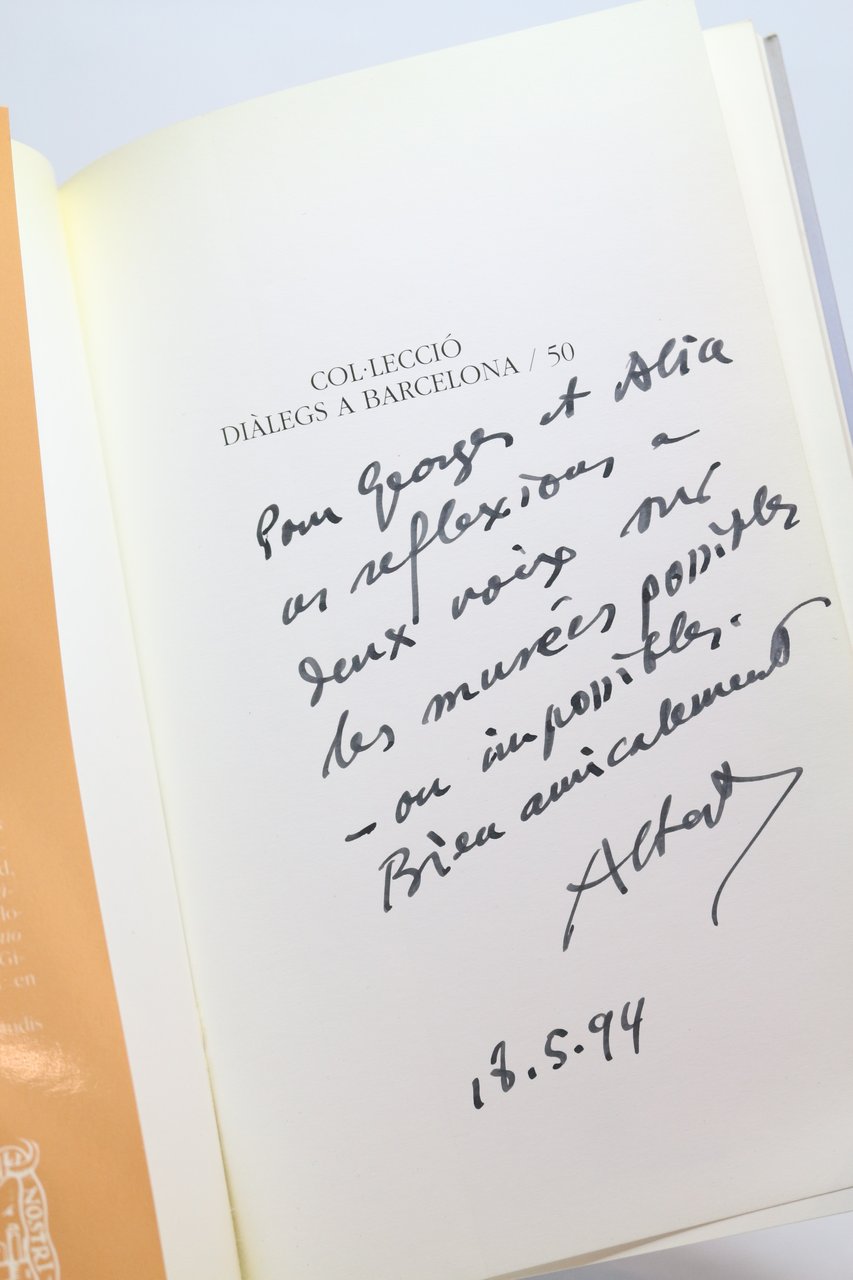 COL·LECCIÓ
DIÀLEGS A BARCELONA / 50
Pour Georges et Alia
ces reflexions a
deux voix sur
les musées possibles
- ou impossibles.
Bien amicalement
Albert
18.5.94
d,
lo-
no
Gi-
en
tudis
NOSTRI